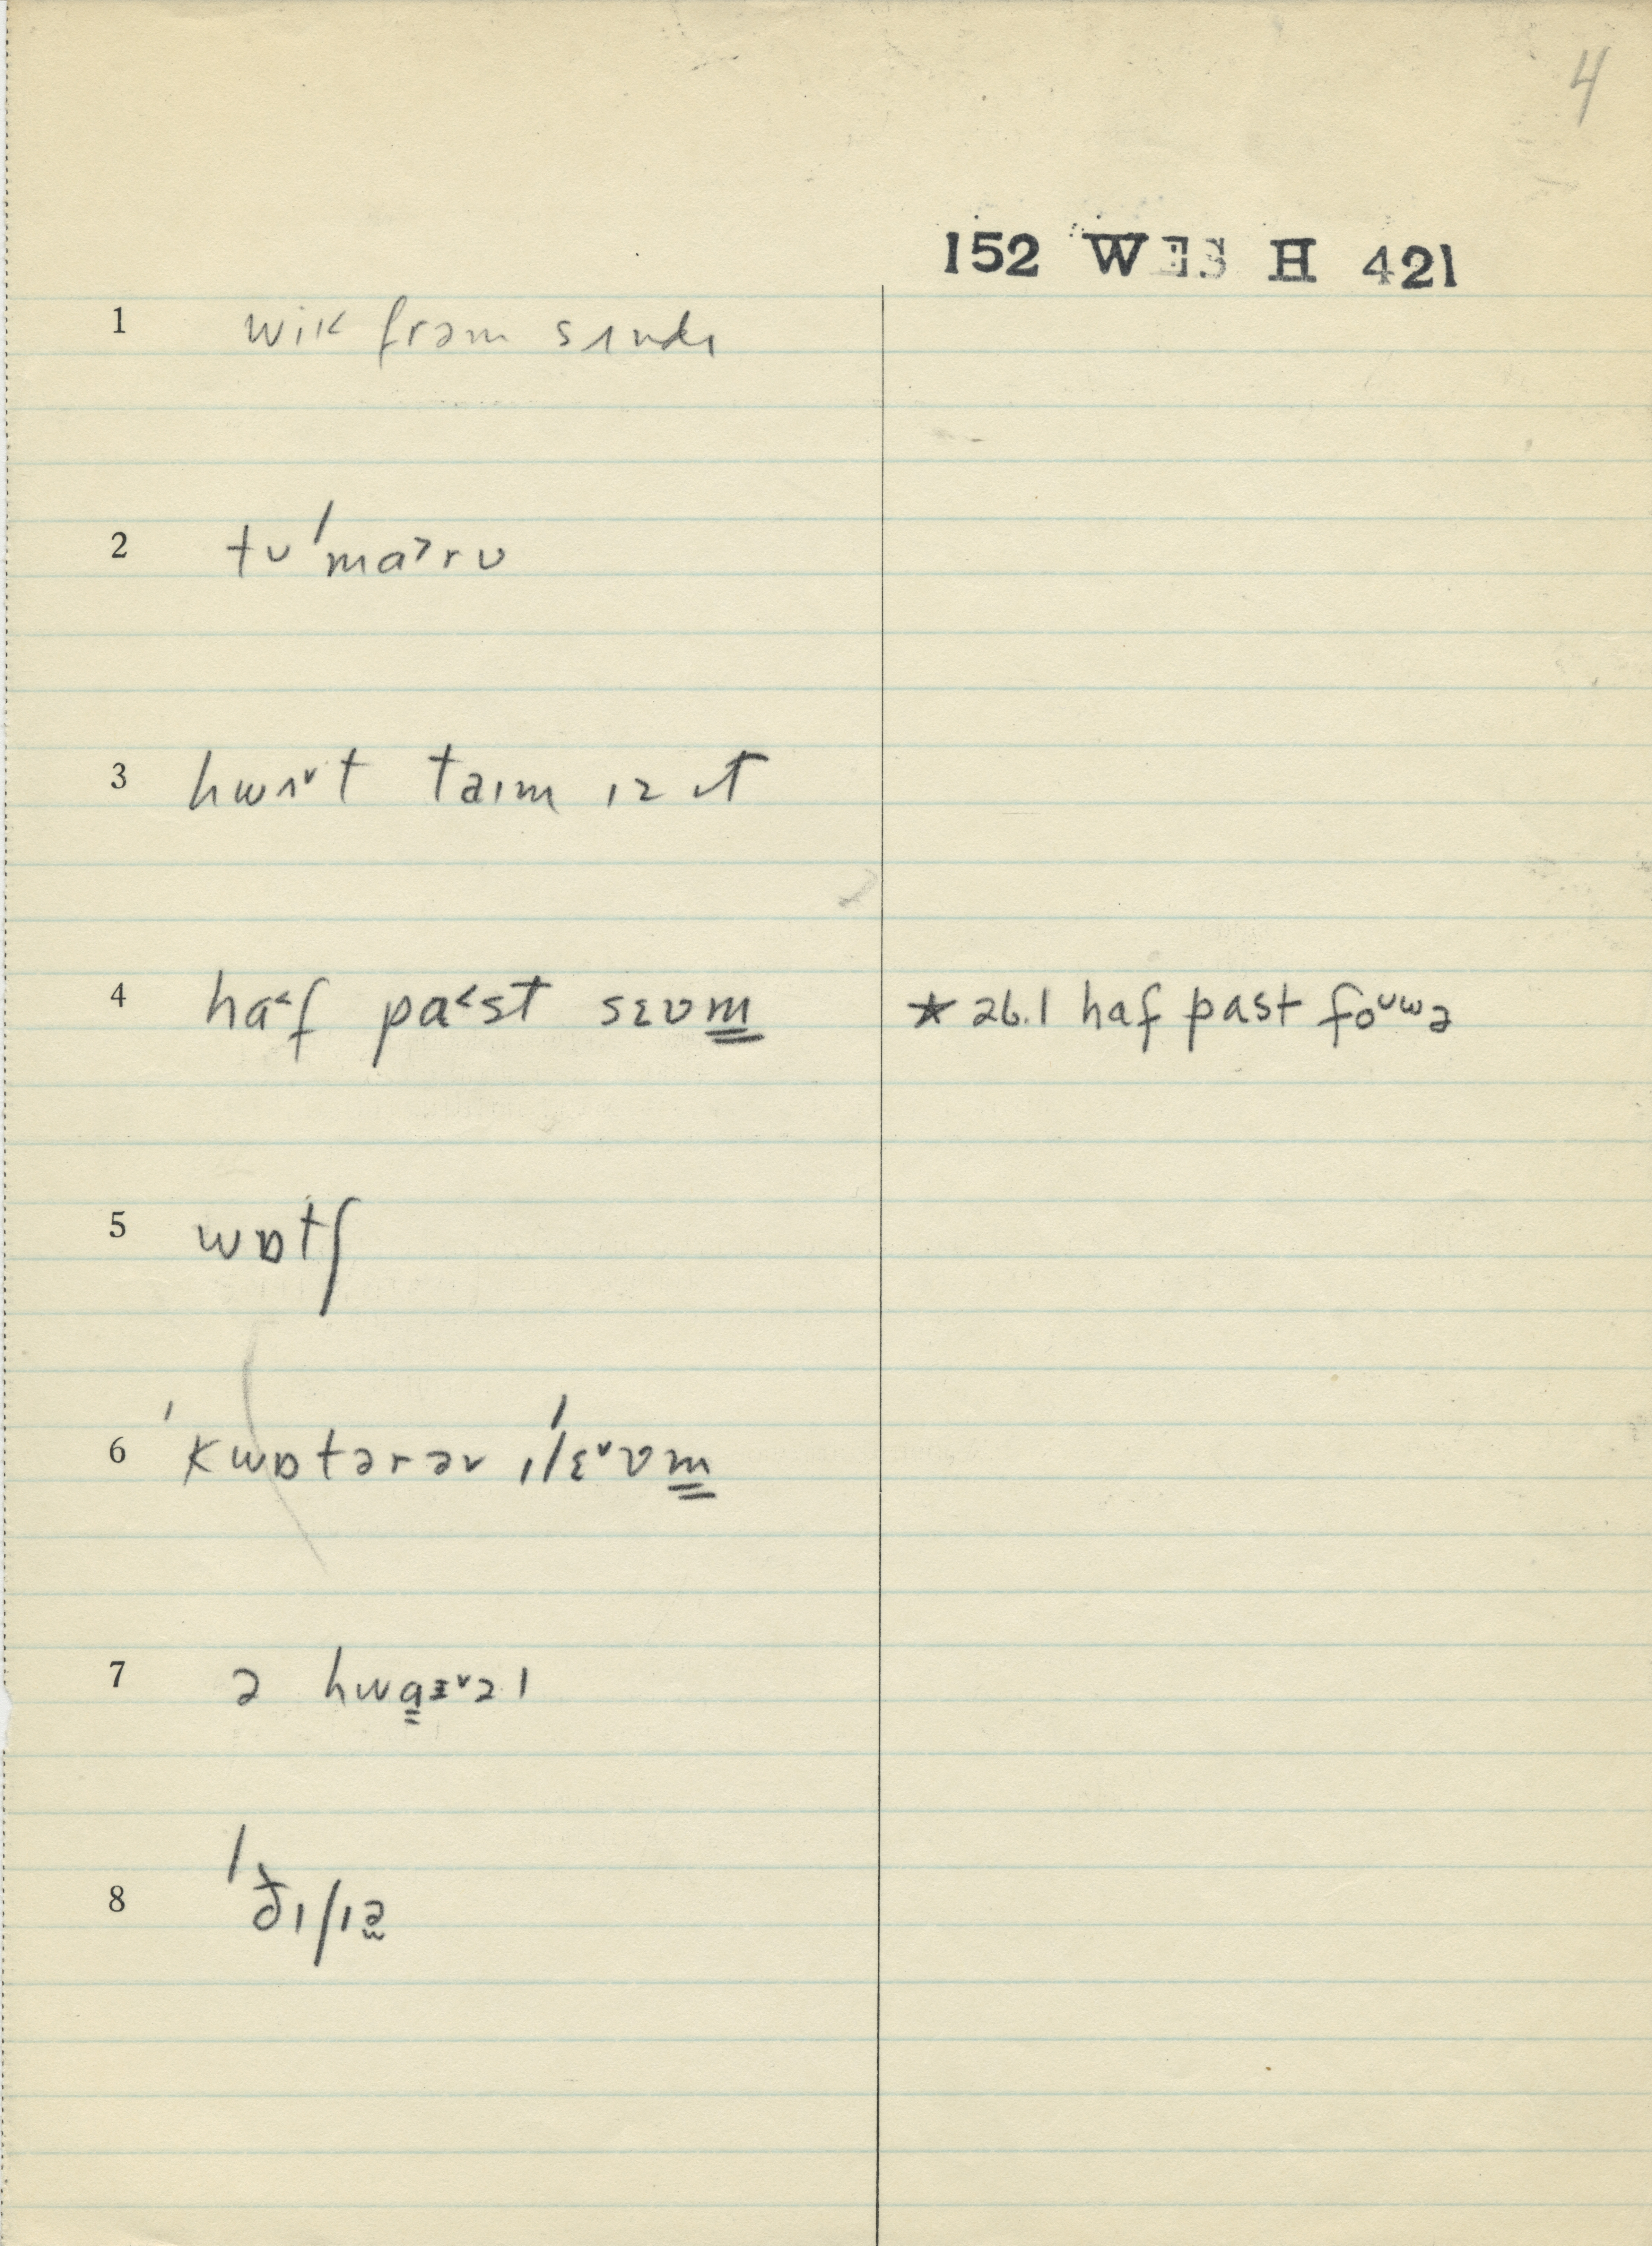 4
152 WES H 421
1 wik frəm sʌndɪ
2 tʊ ˈmɑ˃rʊ
3 hwʌ˅t taɪm ɪz ɪt
4 ha˂f pa˂st sɛvm̳ ★ 26.1 haf past foᶸʷə
5 wɒtʃ
6 ˈkwɒtərəv ɪˈlɛ˅vm̳
7 ə hwa̳ɪ˅əl
8 ˈðɪʃɪə̫